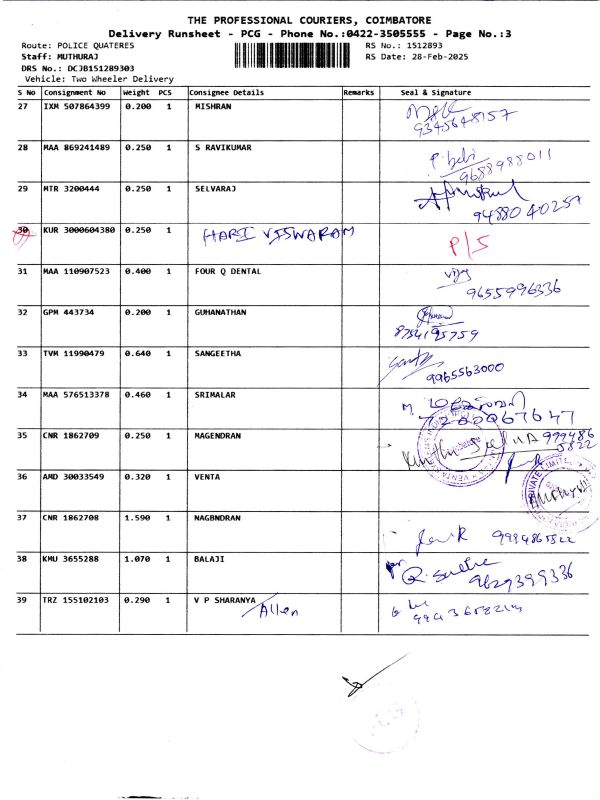 THE PROFESSIONAL COURIERS, COIMBATORE
Delivery Runsheet - PCG - Phone No.:0422-3505555 - Page No.:3
Route: POLICE QUATERES RS No.: 1512893
Staff: MUTHURAJ RS Date: 28-Feb-2025
DRS No.: DCJB151289303
Vehicle: Two Wheeler Delivery
S No Consignment No Weight PCS Consignee Details Remarks Seal & Signature
27 IXM 507864399 0.200 1 MISHRAN
9345648157
28 MAA 869241489 0.250 1 S RAVIKUMAR
P. babi
9688988011
29 MTR 3200444 0.250 1 SELVARAJ
9488040257
30 KUR 3000604380 0.250 1 HARI VISWARAM P/S
31 MAA 110907523 0.400 1 FOUR Q DENTAL vijay
9655996336
32 GPM 443734 0.200 1 GUHANATHAN
8754195759
33 TVM 11990479 0.640 1 SANGEETHA
9965563000
34 MAA 576513378 0.460 1 SRIMALAR
7200067647
35 CNR 1862709 0.250 1 MAGENDRAN
36 AMD 30033549 0.320 1 VENTA
37 CNR 1862708 1.590 1 NAGBNDRAN
38 KMU 3655288 1.070 1 BALAJI
9629399336
39 TRZ 155102103 0.290 1 V P SHARANYA
Allen